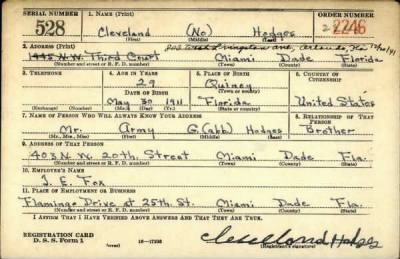 SERIAL NUMBER 1. NAME (Print) ORDER NUMBER
528 Cleveland (No) Hodges 2246
(First) (Middle) (Last)
2. ADDRESS (Print) 203 West Livingston Ave, Orlando, Fla
N.W. Third Court Miami Dade Florida
(Number and street or R. F. D. number) (Town) (County) (State)
3. TELEPHONE 4. AGE IN YEARS 5. PLACE OF BIRTH 6. COUNTRY OF CITIZENSHIP
29 Quincy
DATE OF BIRTH (Town or county)
May 30 1911 Florida United States
(Exchange) (Number) (Mo.) (Day) (Yr.) (State or country)
7. NAME OF PERSON WHO WILL ALWAYS KNOW YOUR ADDRESS 8. RELATIONSHIP OF THAT PERSON
Mr. Army G. Hodges Brother
(Mr., Mrs., Miss) (First) (Middle) (Last)
9. ADDRESS OF THAT PERSON
403 N.W. 20th. Street Miami Dade Fla.
(Number and street or R. F. D. number) (Town) (County) (State)
10. EMPLOYER'S NAME
J. E. Fox
11. PLACE OF EMPLOYMENT OR BUSINESS
Flamingo Drive at 25th. St. Miami Dade Fla.
(Number and street or R. F. D. number) (Town) (County) (State)
I AFFIRM THAT I HAVE VERIFIED ABOVE ANSWERS AND THAT THEY ARE TRUE.
REGISTRATION CARD
D. S. S. Form 1 (over) 16—17105 (Registrant's signature)